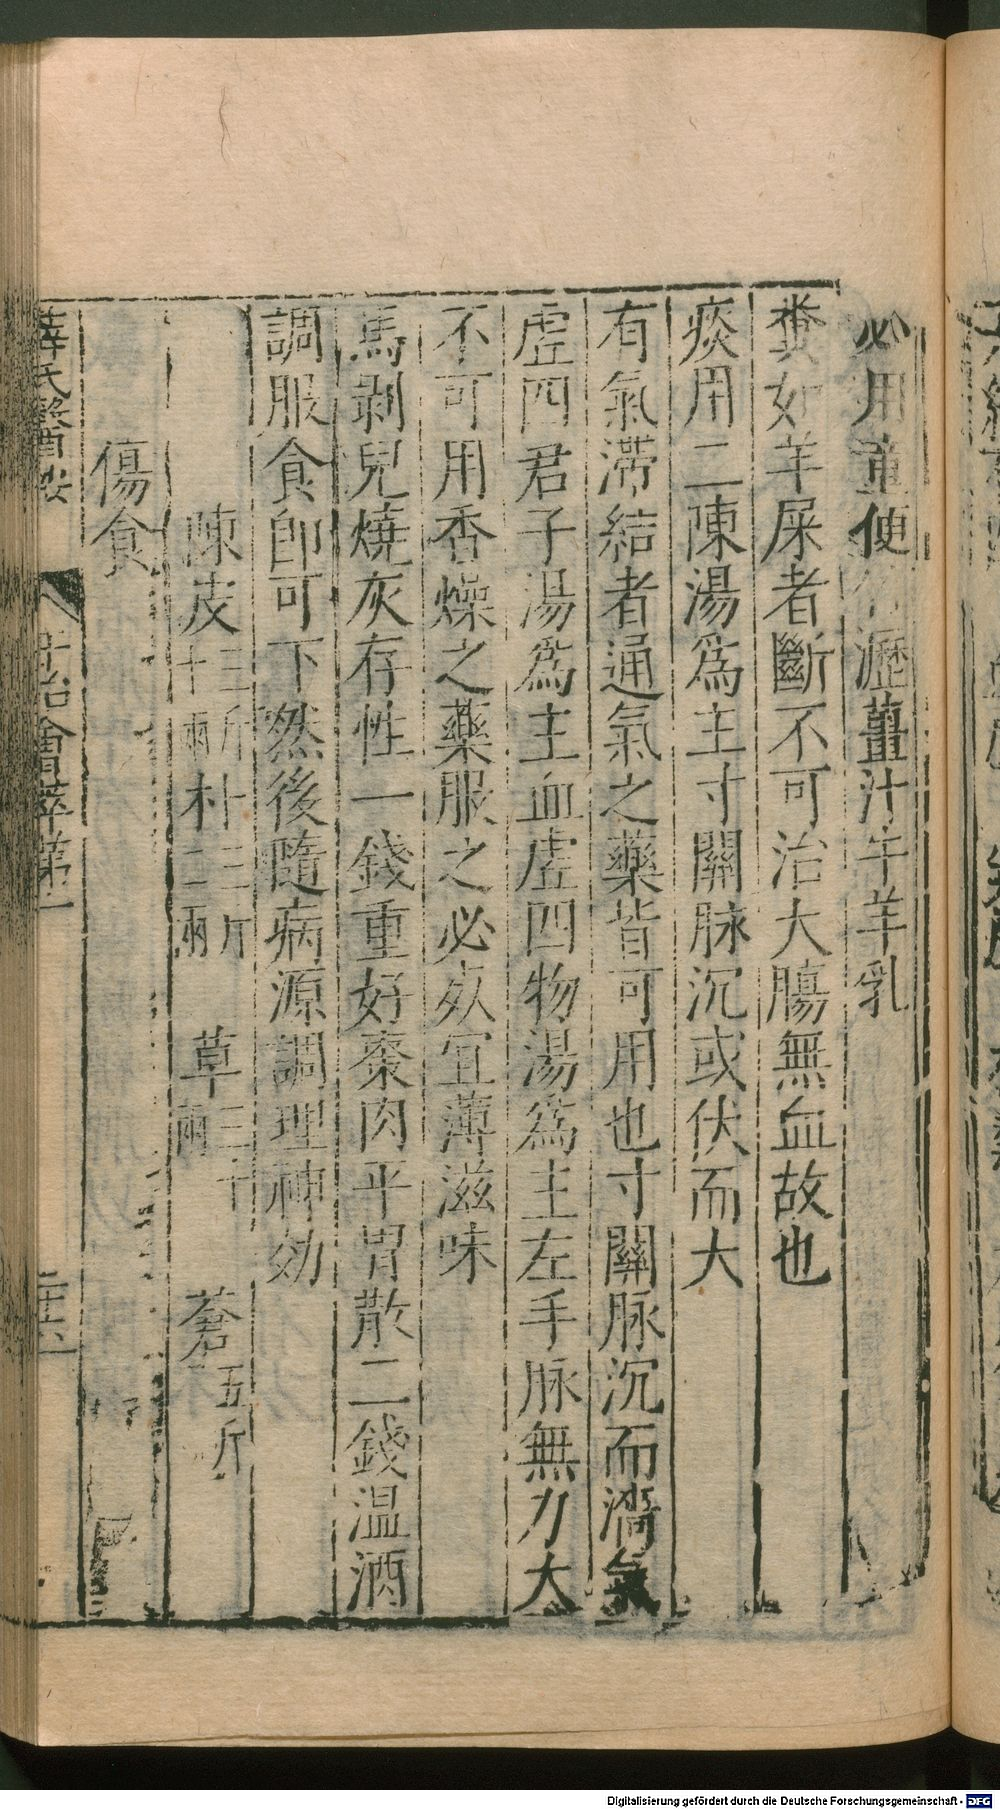 必用童便竹瀝薑汁牛羊乳
糞如羊屎者斷不可治大腸無血故也
痰用二陳湯爲主寸關脉沉或伏而大
有氣滯結者通氣之藥皆可用也寸關脉沉而濇氣
虛四君子湯爲主血虛四物湯爲主左手脉無力大
不可用香燥之藥服之必死宜薄滋味
馬剥兒燒灰存性一錢重好棗肉平胃散二錢温酒
調服食卽可下然後隨病源調理神効
陳皮三斤十兩 朴三斤二兩 草三十兩 蒼五斤
傷食
薛氏醫按 平治會萃第一 二十六
Digitalisierung gefördert durch die Deutsche Forschungsgemeinschaft - DFG